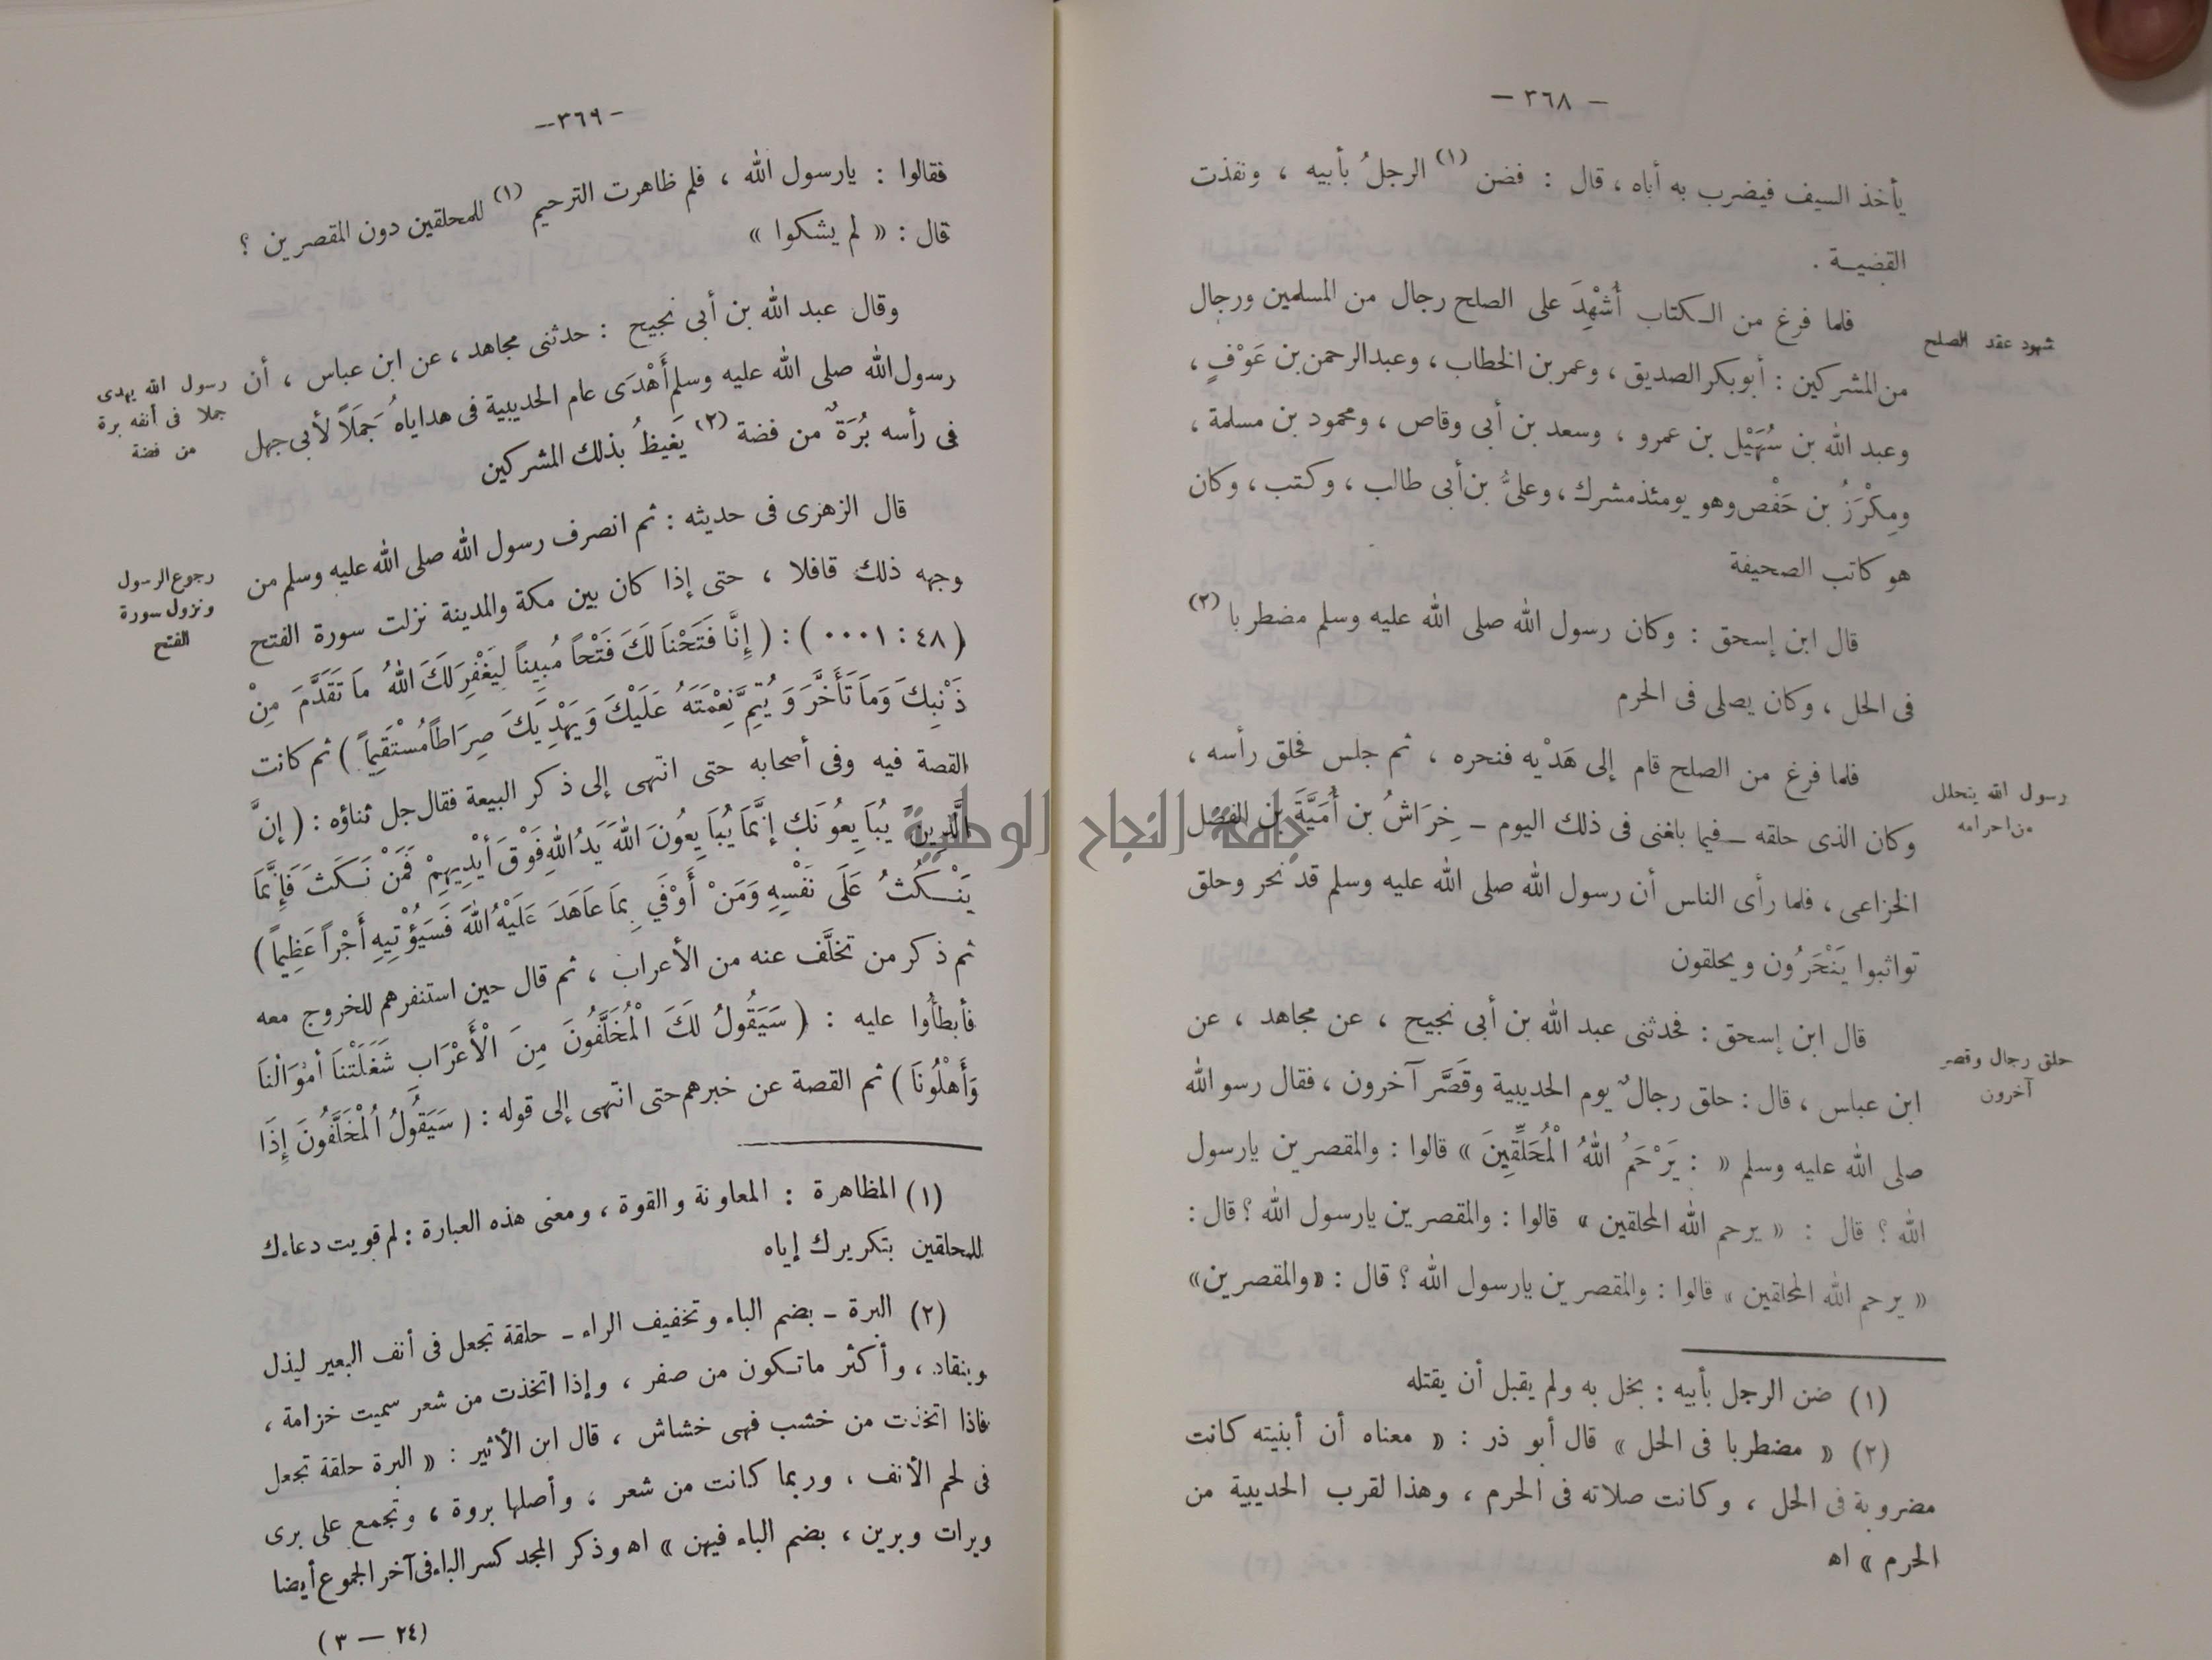 — ٣٦٨ —
يأخذ السيف فيضرب به أباه ، قال : فضن (١) الرجلُ بأبيه ، ونفذت
القضيـة .
شهود عقد الصلح
فلما فرغ من الـكتاب أُشْهِدَ على الصلح رجال من المسلمين ورجال
من المشركين : أبو بكر الصديق ، وعمر بن الخطاب ، وعبد الرحمن بن عَوْفٍ ،
وعبد الله بن سُهَيْل بن عمرو ، وسعد بن أبى وقاص ، ومحمود بن مسلمة ،
ومِكْرَزُ بن حَفْص وهو يومئذ مشرك ، وعلىُّ بن أبى طالب ، وكتب ، وكان
هو كاتب الصحيفة
قال ابن إسحق : وكان رسول الله صلى الله عليه وسلم مضطربا (٢)
فى الحل ، وكان يصلى فى الحرم
رسول الله يتحلل
من احرامه
فلما فرغ من الصلح قام إلى هَدْيه فنحره ، ثم جلس فحلق رأسه ،
وكان الذى حلقه ــ فيما بلغنى فى ذلك اليوم ــ خِرَاشُ بن أُمَيَّةَ بن الفضل
الخزاعى ، فلما رأى الناس أن رسول الله صلى الله عليه وسلم قد نحر وحلق
تواثبوا يَنْحَرُون ويحلقون
حلق رجال وقصر
آخرون
قال ابن إسحق : فحدثنى عبد الله بن أبى نجيح ، عن مجاهد ، عن
ابن عباس ، قال : حلق رجالٌ يوم الحديبية وقصَّر آخرون ، فقال رسو الله
صلى الله عليه وسلم « : يَرْحَمُ اللهُ الْمُحَلِّقِينَ » قالوا : والمقصرين يارسول
الله ؟ قال : « يرحم الله المحلقين » قالوا : والمقصرين يارسول الله ؟ قال :
« يرحم الله المحلقين » قالوا : والمقصرين يارسول الله ؟ قال : «والمقصرين»
(١) ضن الرجل بأبيه : بخل به ولم يقبل أن يقتله
(٢) « مضطربا فى الحل » قال أبو ذر : « معناه أن أبنيته كانت
مضروبة فى الحل ، وكانت صلاته فى الحرم ، وهذا لقرب الحديبية من
الحرم » اه
— ٣٦٩ —
فقالوا : يارسول الله ، فلم ظاهرت الترحيم (١) للمحلقين دون المقصرين ؟
قال : « لم يشكوا »
وقال عبد الله بن أبى نجيح : حدثنى مجاهد ، عن ابن عباس ، أن
رسول الله يهدى
جملا فى أنفه برة
من فضة
رسول الله صلى الله عليه وسلم أَهْدَى عام الحديبية فى هداياه جَمَلاً لأبى جهل
فى رأسه بُرَةٌ من فضة (٢) يَغيظُ بذلك المشركين
قال الزهرى فى حديثه : ثم انصرف رسول الله صلى الله عليه وسلم من
رجوع الرسول
ونزول سورة
الفتح
وجهه ذلك قافلا ، حتى إذا كان بين مكة والمدينة نزلت سورة الفتح
( ٤٨ : ١ ٠٠٠ ) : ( إِنَّا فَتَحْنَا لَكَ فَتْحاً مُبِيناً لِيَغْفِرَ لَكَ اللهُ مَا تَقَدَّمَ مِنْ
ذَنْبِكَ وَمَا تَأَخَّرَ وَيُتِمَّ نِعْمَتَهُ عَلَيْكَ وَيَهْدِيَكَ صِرَاطاً مُسْتَقِيماً ) ثم كانت
القصة فيه وفى أصحابه حتى انتهى إلى ذكر البيعة فقال جل ثناؤه : ( إنَّ
الَّذِينَ يُبَايِعُونَك إنَّمَا يُبَايِعُونَ اللهَ يَدُ اللهِ فَوْقَ أَيْدِيهِمْ فَمَنْ نَكَثَ فَإِنَّمَا
يَنْكُثُ عَلَى نَفْسِهِ وَمَنْ أَوْفَي بِمَا عَاهَدَ عَلَيْهُ اللهَ فَسَيُؤْتِيهِ أَجْراً عَظِيماً )
ثم ذكر من تخلَّف عنه من الأعراب ، ثم قال حين استنفرهم للخروج معه
فأبطأُوا عليه : ( سَيَقُولُ لَكَ الْمُخَلَّفُونَ مِنَ الْأَعْرَابِ شَغَلَتْنَا أمْوَالُنَا
وَأَهْلُونَا ) ثم القصة عن خبرهم حتى انتهى إلى قوله : ( سَيَقُولُ الْمُخَلَّفُونَ إِذَا
(١) المظاهرة : المعاونة والقوة ، ومعنى هذه العبارة : لم قويت دعاءك
للمحلقين بتكريرك إياه
(٢) البرة ـ بضم الباء وتخفيف الراء ـ حلقة تجعل فى أنف البعير ليذل
وينقاد ، وأكثر ماتكون من صفر ، وإذا اتخذت من شعر سميت خزامة ،
فاذا اتخذت من خشب فهى خشاش ، قال ابن الأثير : « البرة حلقة تجعل
فى لحم الأنف ، وربما كانت من شعر ، وأصلها بروة ، وتجمع على برى
وبرات وبرين ، بضم الباء فيهن » اه وذكر المجد كسر الباء فى آخر الجموع أيضا
(٢٤ — ٣ )
جامعة النجاح الوطنية